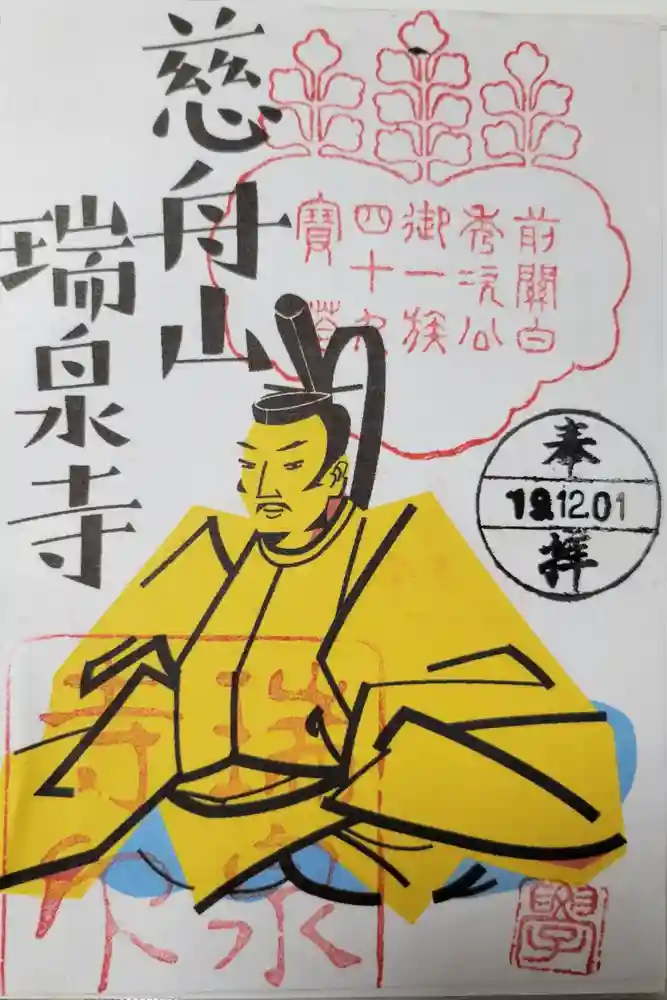 前關白
秀次公
御一族
四十九
寶塔
慈舟山
瑞泉寺
奉
19.12.01
拝
瑞泉
寺印
學